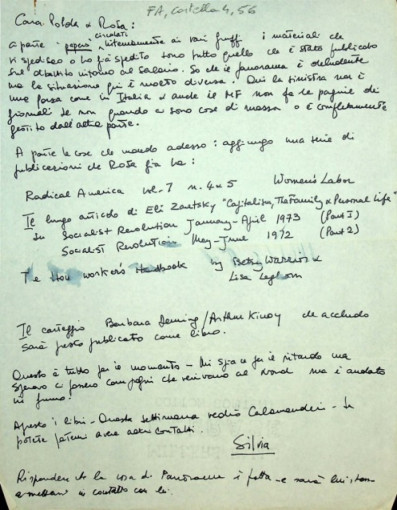 FA, cartella 4, 56
Cara Polda e Rosa:
a parte i papers circolati internamente ai vari gruppi i materiali che
vi spedisco o ho già spedito sono tutto quello che è stato pubblicato
sul dibattito intorno al Salario. So che il panorama è deludente
ma la situazione qui è molto diversa. Qui la sinistra non è
una forza come in Italia e anche il MF non fa le pagine dei
giornali se non quando ci sono cose di massa o è completamente
gestito dall'altra parte.
A parte le cose che mando adesso: aggiungo una serie di
pubblicazioni che Rosa già ha:
Radical America vol. 7 n. 4 e 5 Women's Labor
Il lungo articolo di Eli Zaretsky "Capitalism, The Family & Personal Life"
su Socialist Revolution January-April 1973 (Part I)
Socialist Revolution May-June 1972 (Part 2)
The Houseworker's Handbook by Betsy Warrior &
Lisa Leghorn
Il carteggio Barbara Deming/Arthur Kinoy che accludo
sarà presto pubblicato come libro.
Questo è tutto per il momento - Mi spiace per il ritardo ma
speravo ci fossero compagni che venivano al Nord ma è andato
in fumo.
Aspetto i libri - Questa settimana vedrò Calamandrei - Se
potete fatemi avere altri contatti.
Silvia
Rispondere che la cosa di Panorama è fatta - e sarà
e mettersi in contatto con lei.